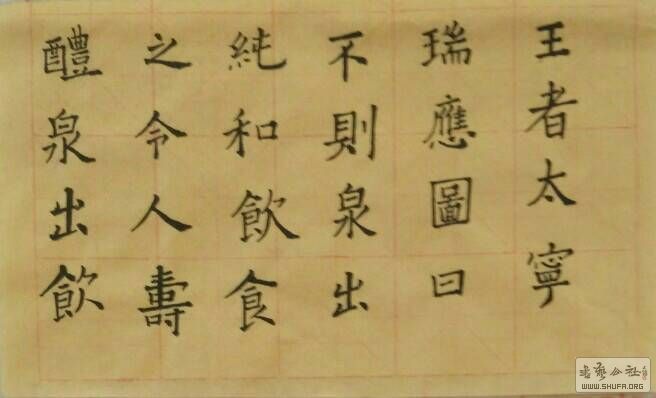 王者太寧
瑞應圖曰
不則泉出
純和飲食
之令人壽
醴泉出飲
WWW.SHUFA.ORG